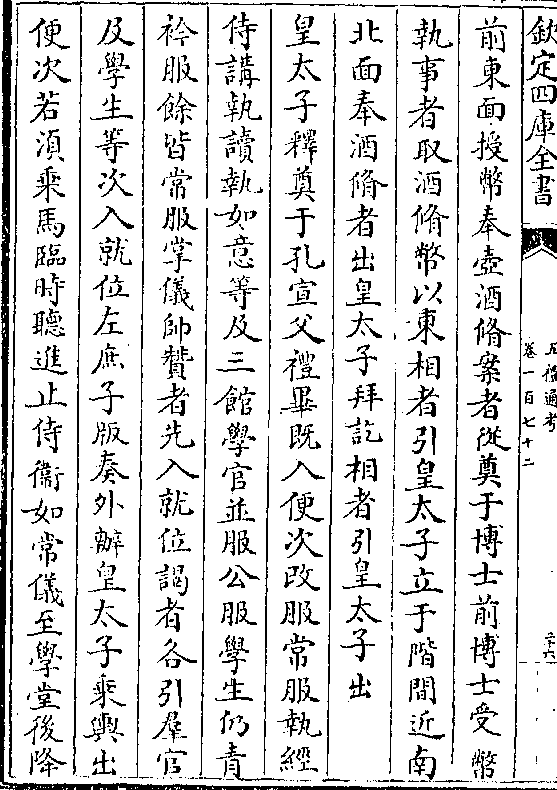 欽定四庫全書
五禮通考
卷一百七十二
二十六
前東面授幣奉壺酒脩案者從奠于博士前博士受幣
執事者取酒脩幣以東相者引皇太子立于階間近南
北面奉酒脩者出皇太子拜訖相者引皇太子出
皇太子釋奠于孔宣父禮畢既入便次改服常服執經
侍講執讀執如意等及三館學官並服公服學生仍青
衿服餘皆常服掌儀帥贊者先入就位謁者各引羣官
及學生等次入就位左庶子版奏外辦皇太子乘輿出
便次若湏乗馬臨時聽進止侍衞如常儀至學堂後降